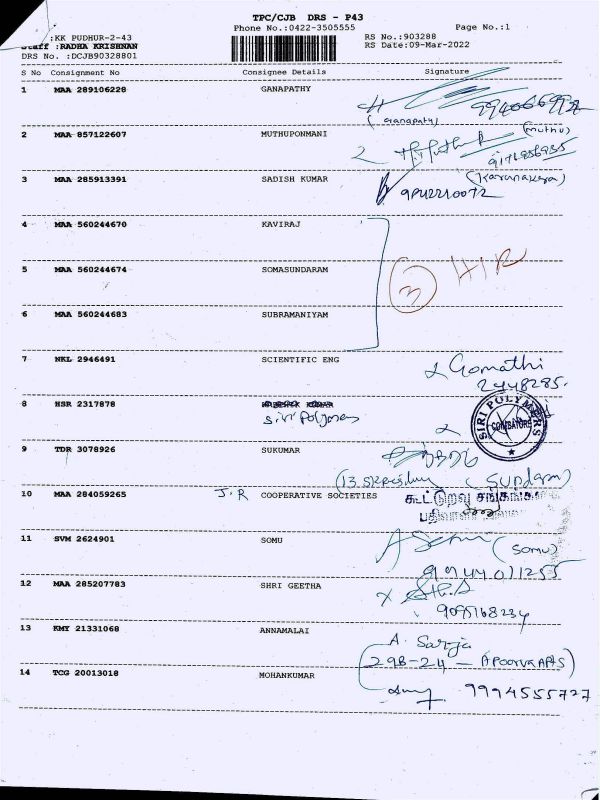 TPC/CJB DRS - P43
:KK PUDHUR-2-43
Phone No.:0422-3505555
Page No.:1
Staff :RADHA KRISHNAN
RS No.:903288
DRS No. :DCJB90328801
RS Date:09-Mar-2022
S No Consignment No Consignee Details Signature
1 MAA 289106228 GANAPATHY
(Ganapathy)
2 MAA 857122607 MUTHUPONMANI
(muthu)
3 MAA 285913391 SADISH KUMAR
9842210072
4 MAA 560244670 KAVIRAJ
5 MAA 560244674 SOMASUNDARAM
3
6 MAA 560244683 SUBRAMANIYAM
7 NKL 2946491 SCIENTIFIC ENG
Gomathi
2448285.
8 HSR 2317878
Siri Polymers
SIRI POLYMERS
COIMBATORE
9 TDR 3078926 SUKUMAR
(Sundaram)
10 MAA 284059265 J.R COOPERATIVE SOCIETIES
கூட்டுறவு
11 SVM 2624901 SOMU
(Somu)
9944011255
12 MAA 285207783 SHRI GEETHA
9095168234
13 KMY 21331068 ANNAMALAI
A. Saroja
(29B-24 - Apoorva APTS)
14 TCG 20013018 MOHANKUMAR
9994555727